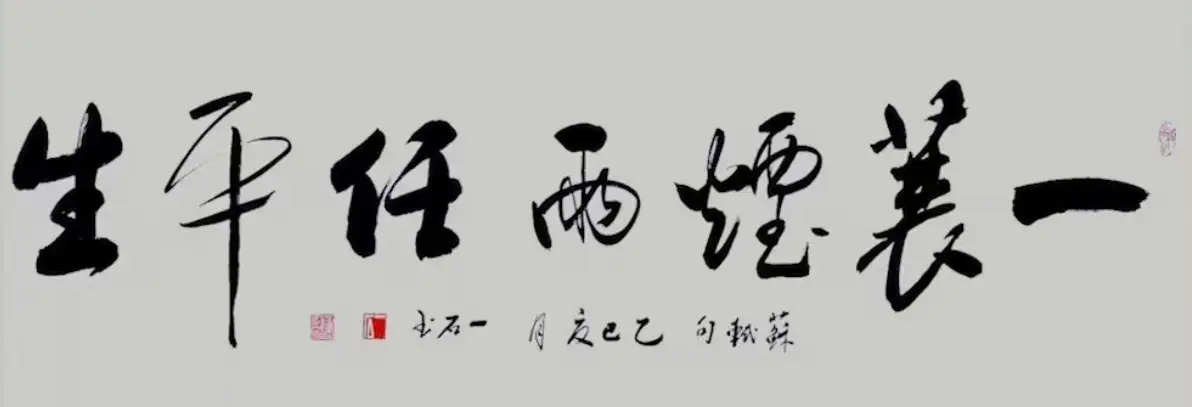 一蓑煙雨任平生
蘇軾句 乙巳亥月 一石书